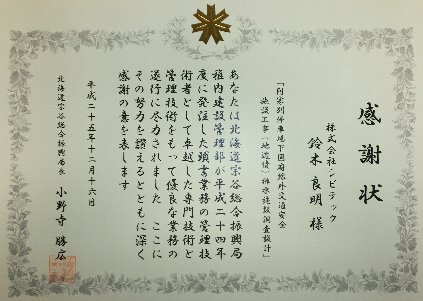 感謝状
株式会社シビテック
鈴木良明 様
施設工事(地逆債)排水施設調査設計」
あなたは北海道宗谷総合振興局
稚内建設管理部が平成二十四年
度に発注した頭書業務の管理技
術者として卓越した専門技術と
管理技術をもって優良な業務の
遂行に尽力されました ここに
その努力を讃えるとともに深く
感謝の意を表します
平成二十五年十二月十六日
北海道宗谷総合振興局長 小野寺 勝広